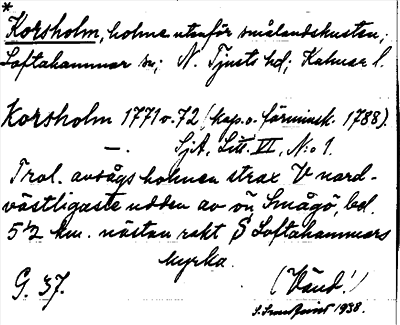 *
Korsholm, holme utanför smålandskusten;
Loftahammar sn; N. Tjusts hd; Kalmar l.
Korsholm 1771 o. 72 (kop. o. förminsk. 1788).
—. Sjk. Litt. VI, N:o 1.
Trol. avsågs holmen strax V nord-
västligaste udden av ön Smågö, bel.
5½ km. nästan rakt S Loftahammars
kyrka.
G. 37. (Vänd!)
1938.